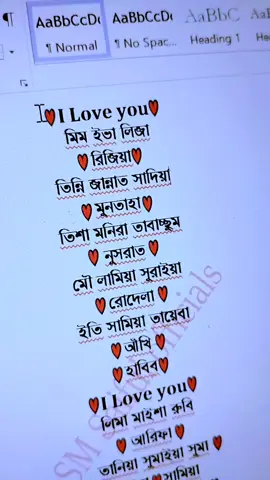 AaBbCcDc
AaBbCcDc
AaBbC
AaBbC
¶ Normal
¶ No Spac...
Heading 1
❤I Love you❤
মিম ইভা লিজা
❤রিজিয়া❤
তিন্নি জান্নাত সাদিয়া
❤মুনতাহা❤
তিশা মনিরা তাবাচ্ছুম
❤নুসরাত❤
মৌ লামিয়া সুরাইয়া
❤রোদেলা❤
ইতি সামিয়া তায়েবা
❤আঁখি❤
❤হাবিব❤
❤I Love you❤
লিমা মাইশা রুবি
❤আরিফা❤
তানিয়া সুমাইয়া সুমা
❤সামিয়া
SM